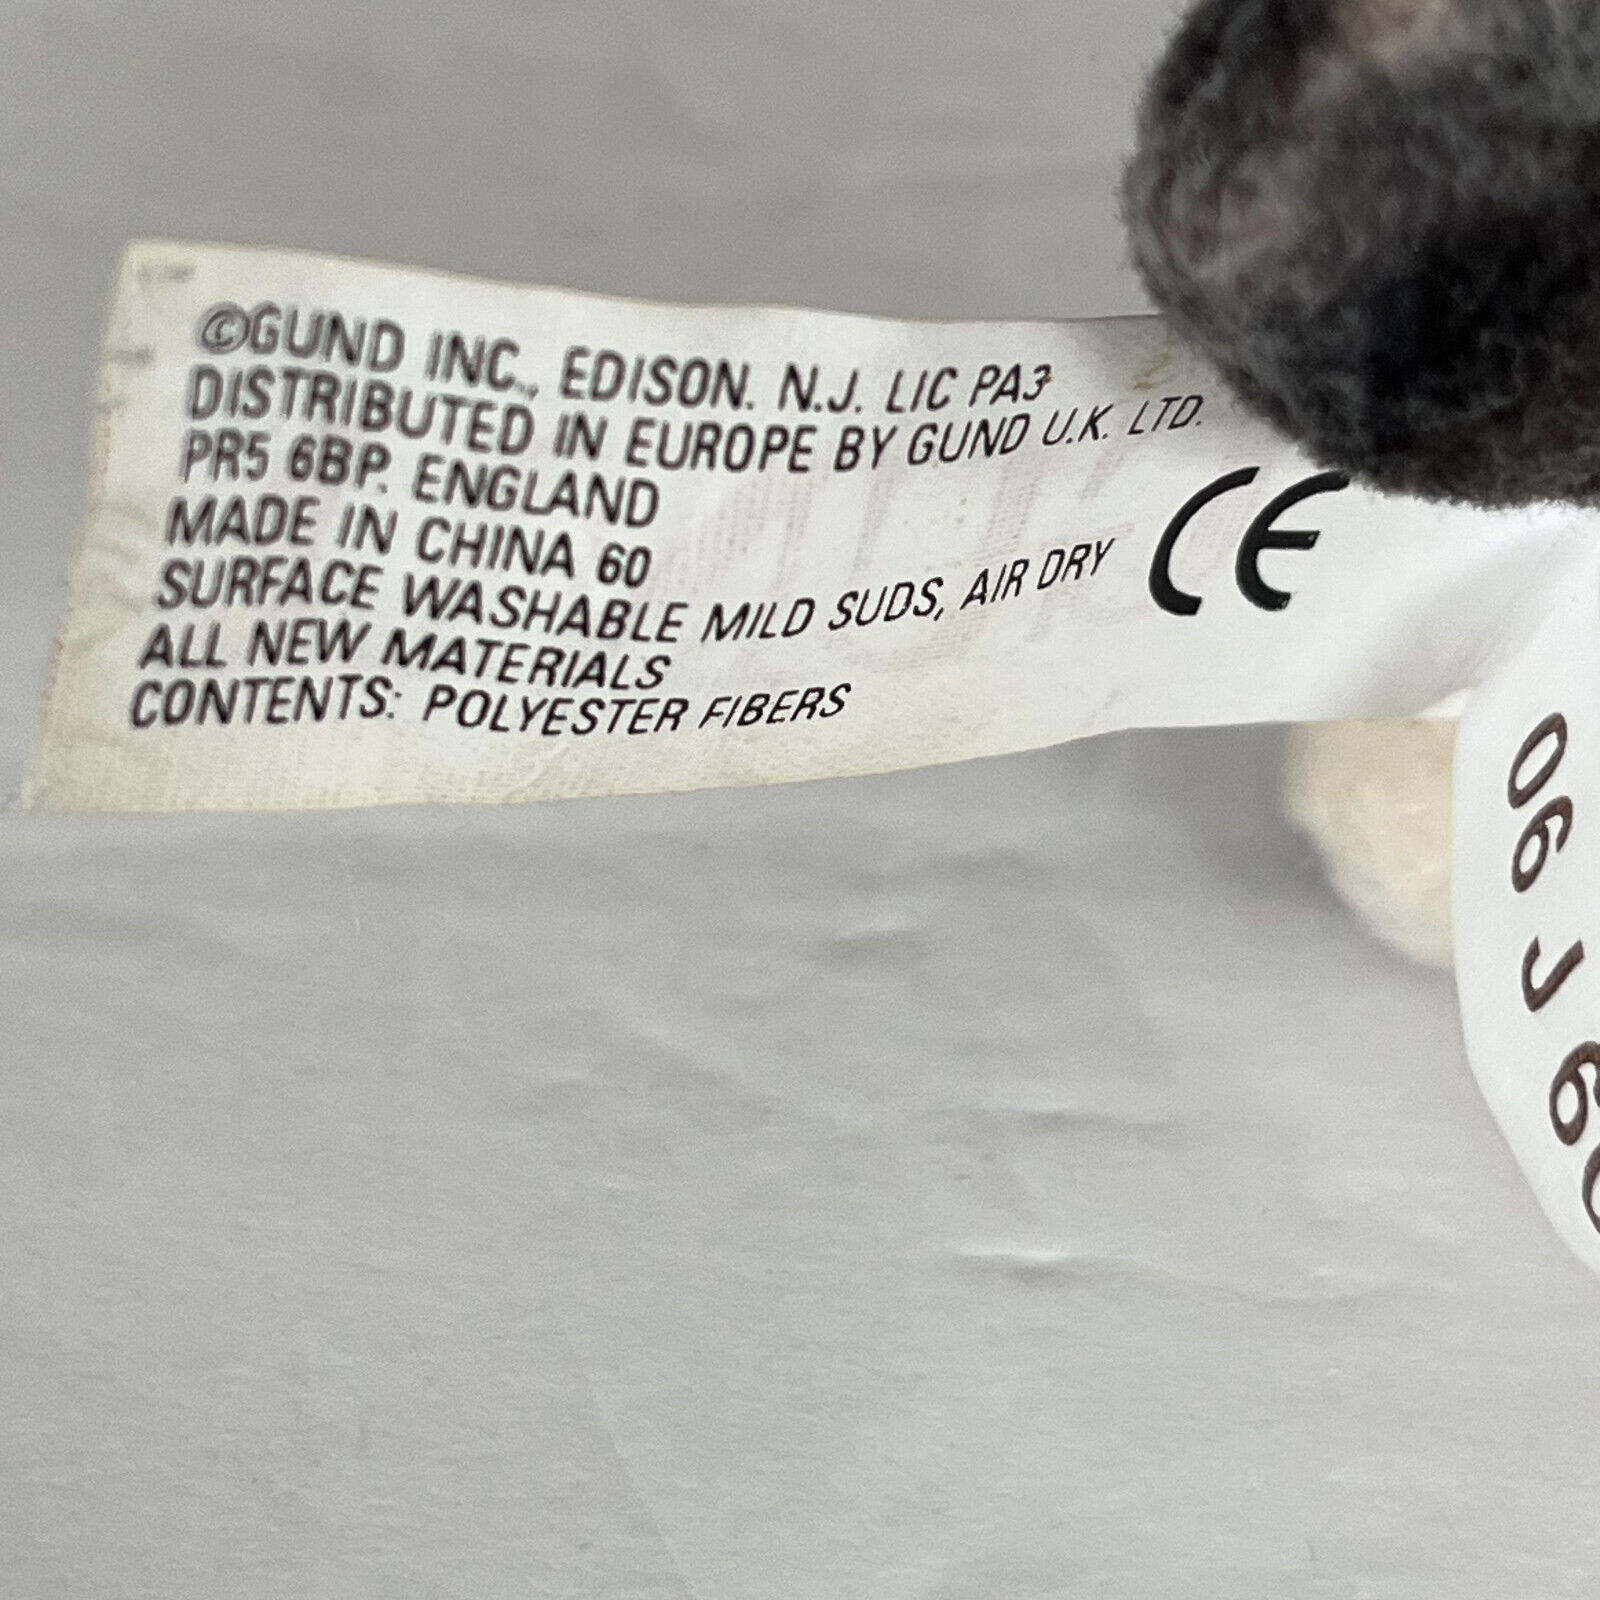 ©GUND INC., EDISON. N.J. LIC PA3
DISTRIBUTED IN EUROPE BY GUND U.K. LTD.
PR5 6BP. ENGLAND
MADE IN CHINA 60
SURFACE WASHABLE MILD SUDS, AIR DRY
ALL NEW MATERIALS
CONTENTS: POLYESTER FIBERS
CE
06 J 6